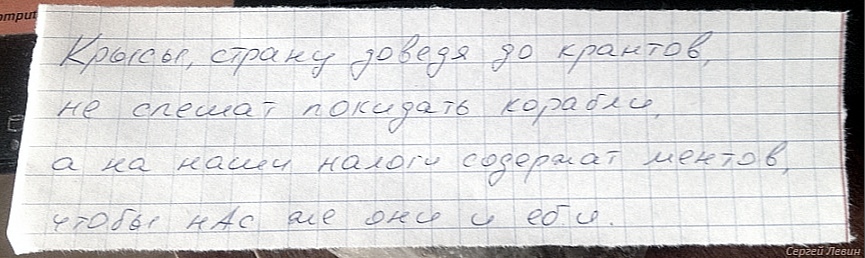 omput
Крысы, страну доведя до крантов,
не спешат покидать корабли,
а на наши налоги содержат ментов,
чтобы нАс же они и еб.и.
Сергей Левин